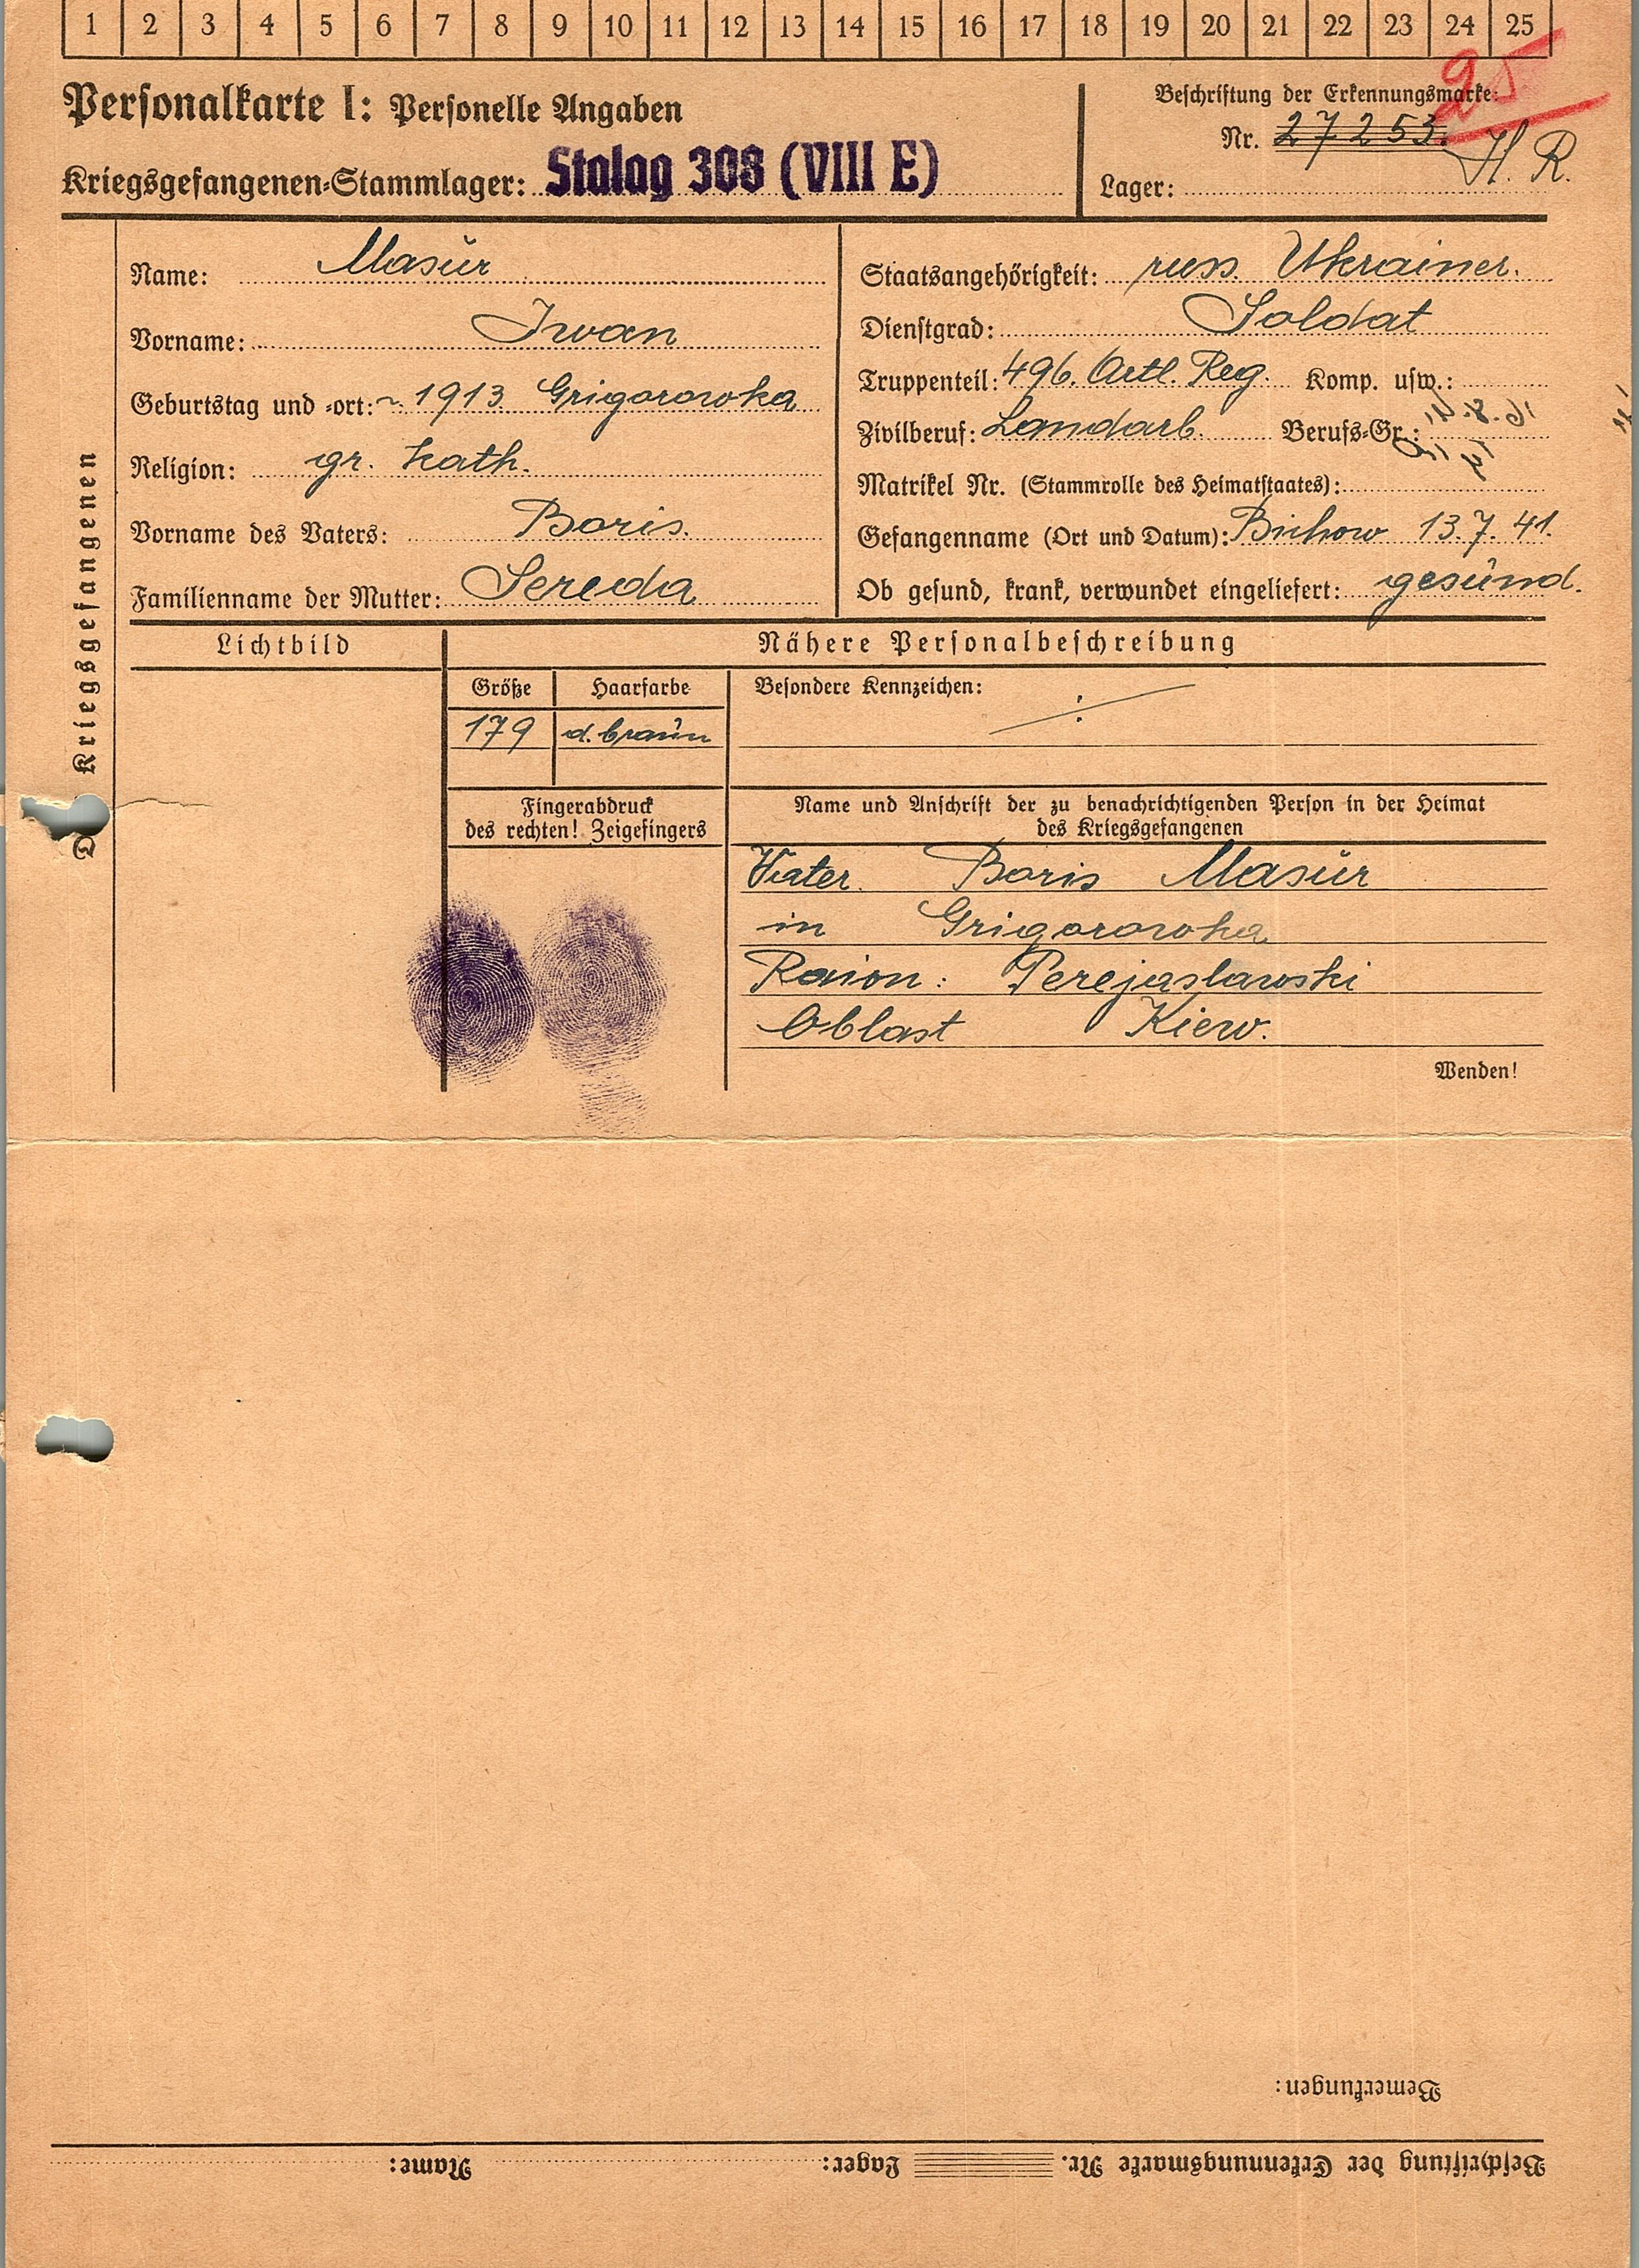 1 2 3 4 5 6 7 8 9 10 11 12 13 14 15 16 17 18 19 20 21 22 23 24 25
25
Personalkarte I: Personelle Angaben
Kriegsgefangenen-Stammlager: Stalag 308 (VIII E)
Beschriftung der Erkennungsmarke:
Nr. 27253.
H. R.
Lager:
Kriegsgefangenen
Name: Masur
Vorname: Iwan
Geburtstag und -ort: ~ 1913 Grigorowka
Religion: gr. kath.
Vorname des Vaters: Boris.
Familienname der Mutter: Sereda
Staatsangehörigkeit: russ. Ukrainer.
Dienstgrad: Soldat
Truppenteil: 496. Artl. Reg. Komp. usw.:
Zivilberuf: Landarb. Berufs-Gr.:
Matrikel Nr. (Stammrolle des Heimatstaates):
Gefangenname (Ort und Datum): Bichow 13.7.41.
Ob gesund, krank, verwundet eingeliefert: gesund.
Lichtbild
Nähere Personalbeschreibung
Größe Haarfarbe
179 d. braun
Besondere Kennzeichen:
Fingerabdruck
des rechten! Zeigefingers
Name und Anschrift der zu benachrichtigenden Person in der Heimat
des Kriegsgefangenen
Vater Boris Masur
in Grigorowka
Raion: Perejaslawski
Oblast Kiew.
Wenden!
Bemerkungen:
Beschriftung der Erkennungsmarke Nr. Lager: Name: